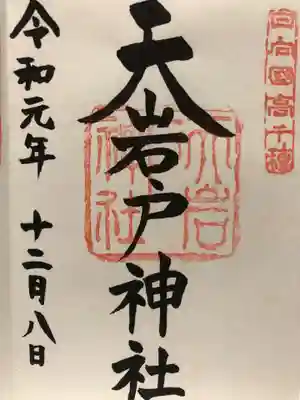 日向國高千穂
天岩戸神社
天岩
神社
令和元年 十二月八日